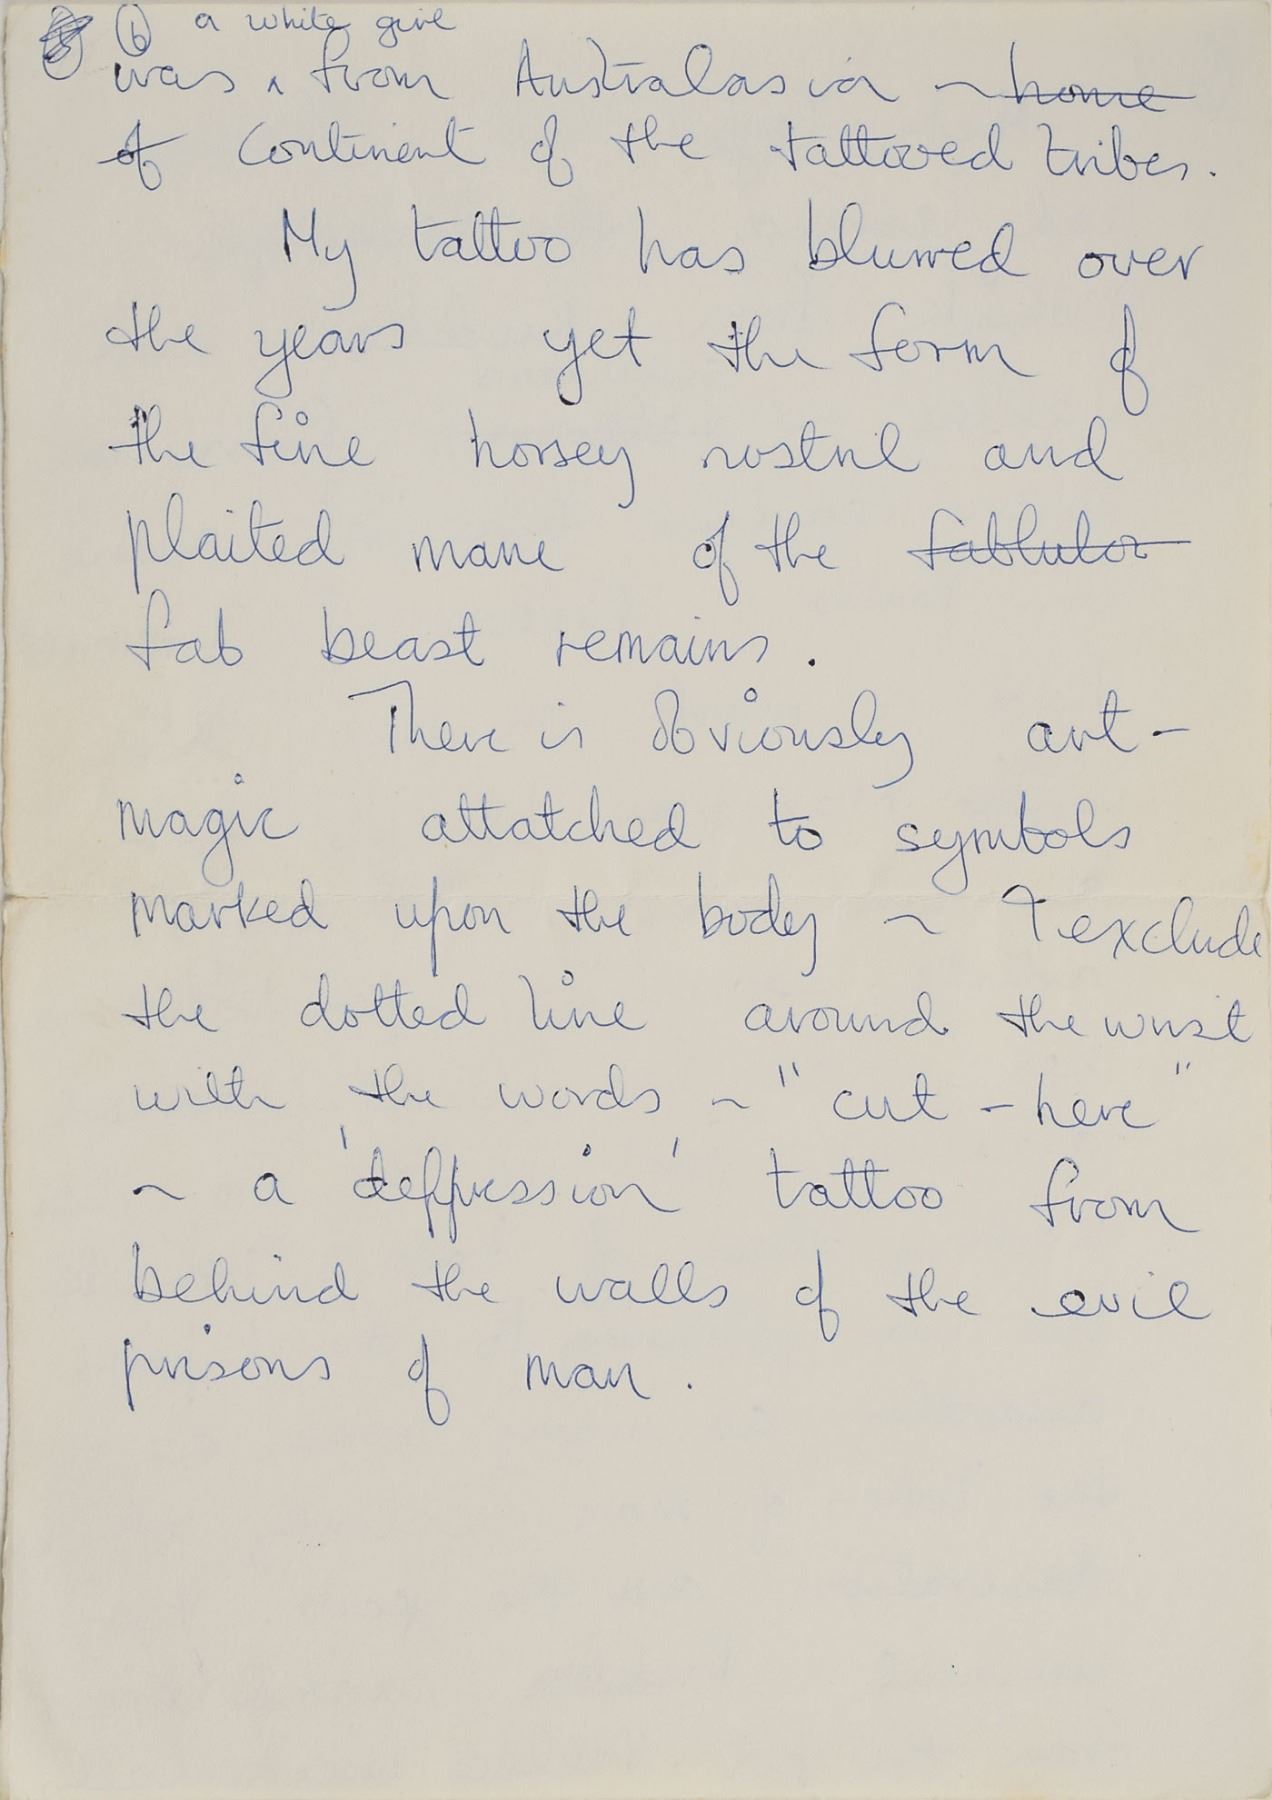 6 a white girl
was ^ from Australasia ~ home
of Continent of the tattooed tribes.
My tattoo has blurred over
the years yet the form of
the fine horsey nostril and
plaited mane of the fablulor
fab beast remains.
There is obviously art-
magic attatched to symbols
marked upon the body ~ I exclude
the dotted line around the wrist
with the words ~ "cut - here"
~ a 'deppression' tattoo from
behind the walls of the evil
prisons of man.